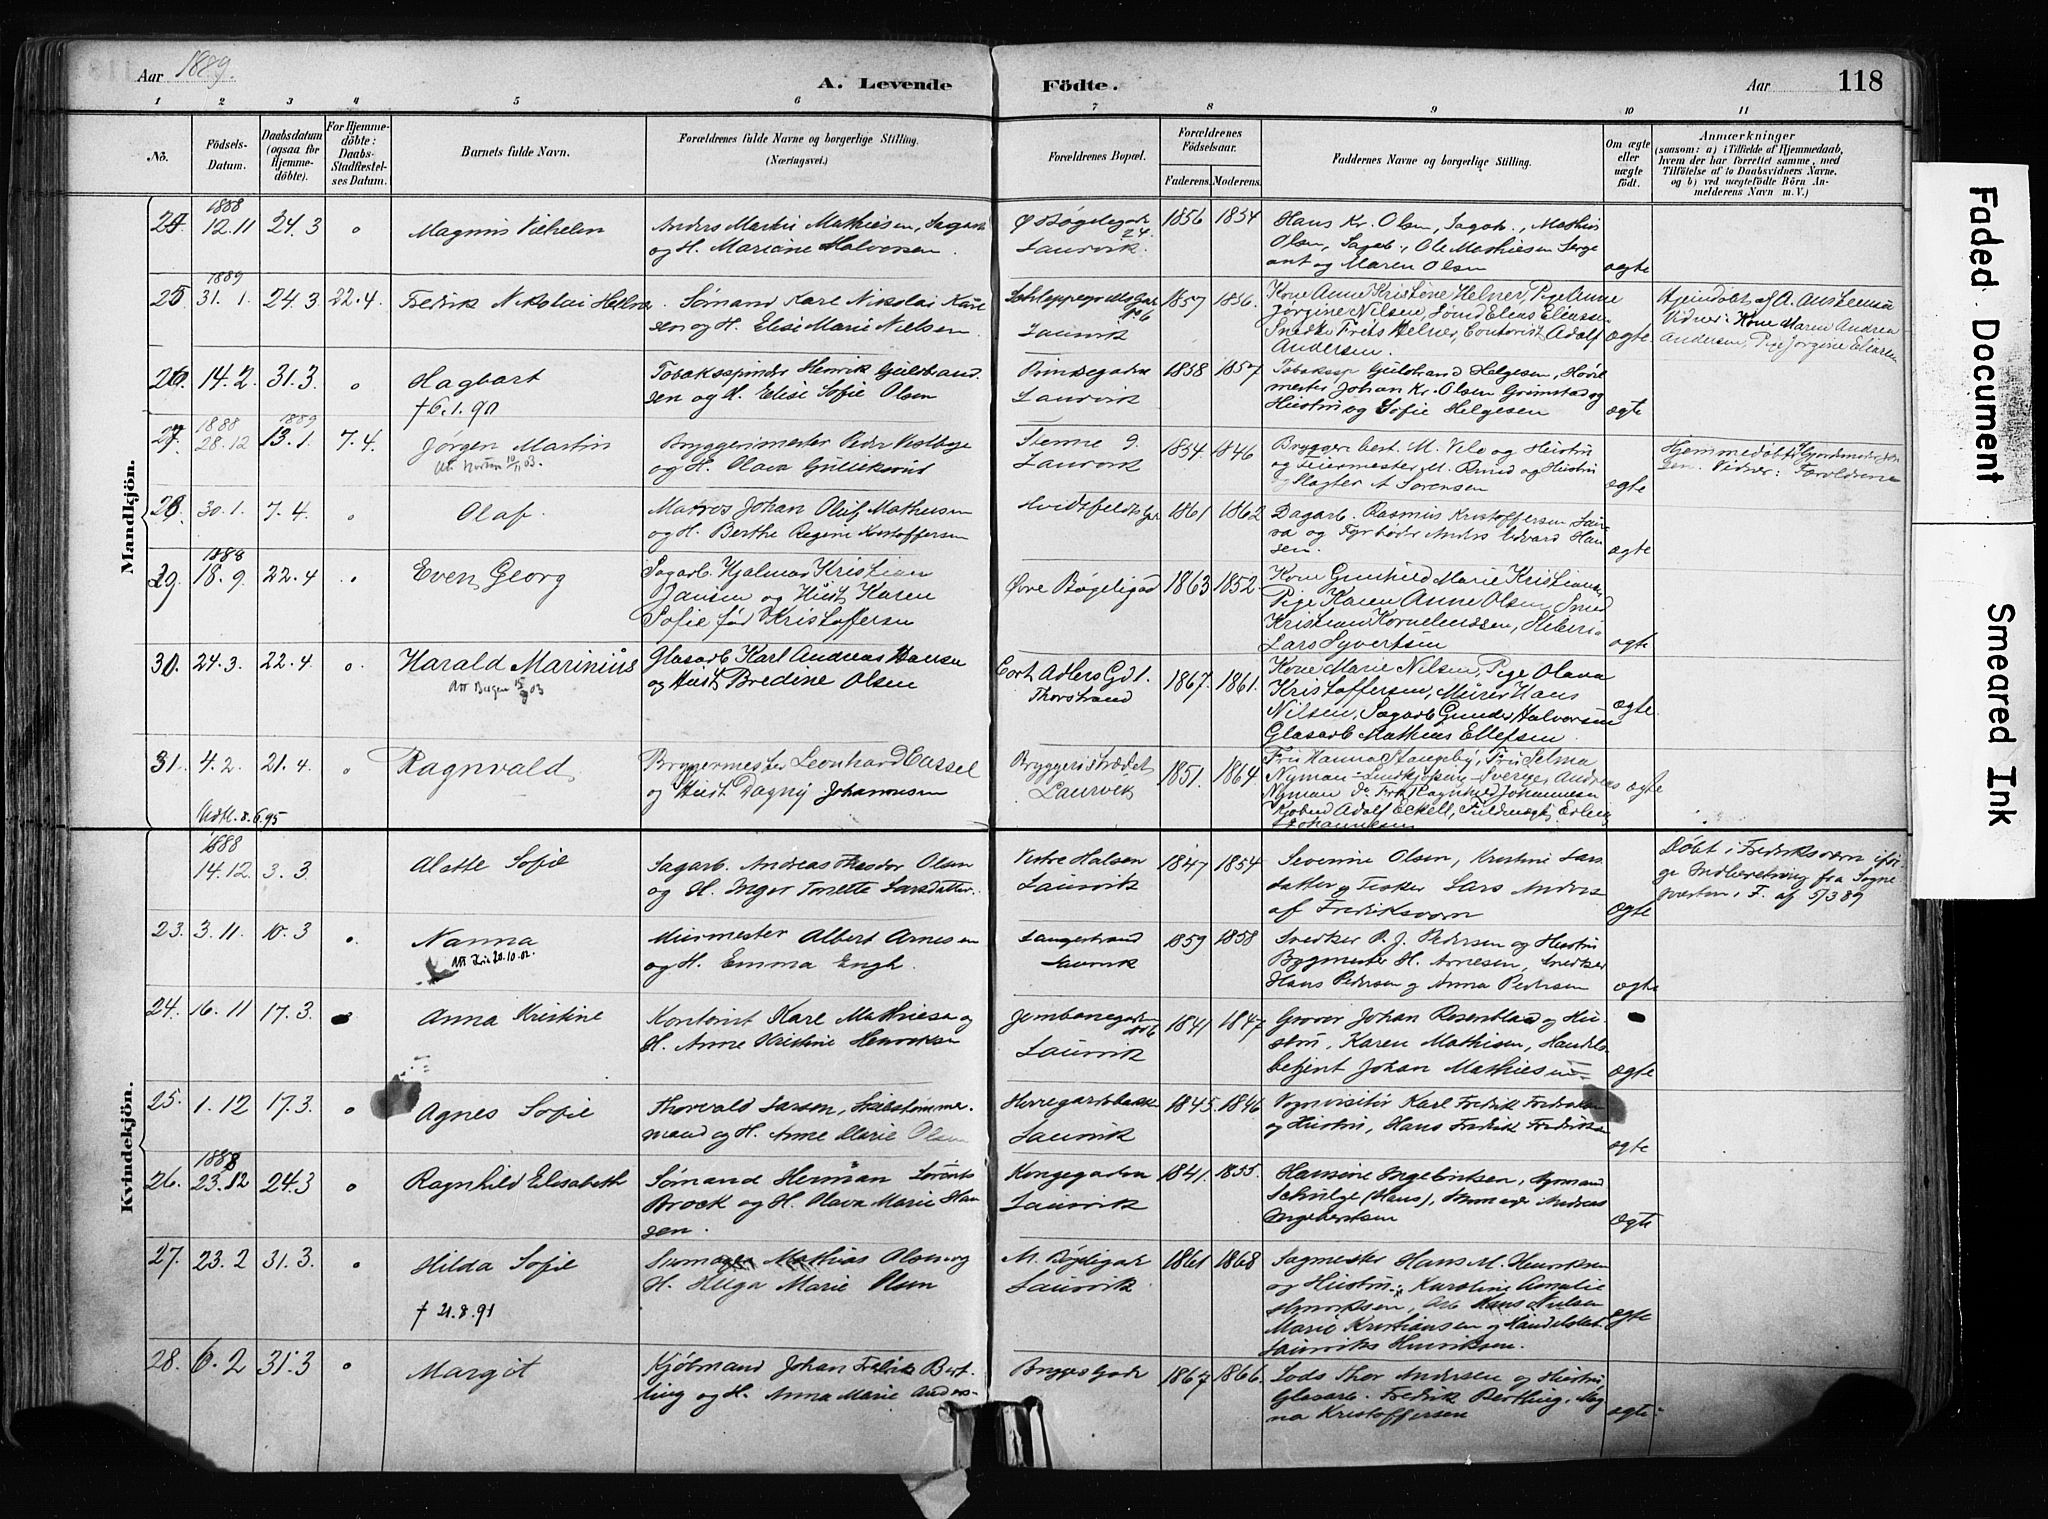 Aar 1889.
A. Levende Födte.
Aar
118
1 2 3 4 5 6 7 8 9 10 11
No.
Födsels-Datum.
Daabsdatum (ogsaa for Hjemme-döbte).
For Hjemme-döbte: Daabs-Stadfæstel-ses Datum.
Barnets fulde Navn.
Forældrenes fulde Navne og borgerlige Stilling. (Næringsvei.)
Forældrenes Bopæl.
Forældrenes Födselsaar.
Faderens. Moderens.
Faddernes Navne og borgerlige Stilling.
Om ægte eller uægte födt.
Anmærkninger
(saasom: a) i Tilfælde af Hjemmedaab,
hvem der har forrettet samme, med
Tilföielse af to Daabsvidners Navne.
og b) ved uægtefödte Börn An-
melderens Navn m. V.)
Mandkjön.
1888
24. 12.11 24.3 " Magnus Vilhelm
Anders Martin Mathiesen, Sagarb
og H. Mariane Halvorsen.
Ø Bøgelegade 24
Laurvik.
1856 1854
Hans Kr. Olsen, Sagarb., Mathis
Olsen, Sagarb., Ole Mathiesen Serge
ant og Maren Olsen
ægte
1889
25 31.1. 24.3 22.4. Fredrik Nikolai Helner.
Sømand Karl Nikolai Karl
sen og H. Elise Marie Nielsen.
No 6
Laurvik
1857 1856.
Kone Anne Kristine Helner, Pige Anne
Jørgine Nilsen, Sømd Elias Eliassen
Snedk Frets Helner, Contorist Adolf
Andersen.
ægte
Hjemdøbt af A.
Vidner: Kone Maren Andrea
Andersen, Pige Jørgine Eliasen
26 14.2. 31.3. " Hagbart
† 6.1.90
Tobakspinder Henrik Guldbrand
sen og H. Elise Sofie Olsen
Prindsegaden
Laurvik
1858 1857
Tobakssp Guldbrand Helgesen, Høvl
mester Johan Kr. Olsen Grimstad og
Hustru og Sofie Helgesen
ægte
1888 1889
27. 28.12 13.1. 7.4. Jørgen Martin
Att Horten 10/11 03.
Bryggerimester Peder
og H. Olava Gulleksrud
Stenne 9.
Laurvik
1854 1846
Bryggeribest. M. Velo og Hustru
og Feiermester M. Ruud og Hustru
og Slagter A Sørensen
ægte
Hjemmedøbt af
sen. Vidner: Forældrene
28. 30.1. 7.4. " Olaf
Matros Johan Oluf Mathisen
og H. Berthe Regine Kristoffersen
Hvidtfeldts Gd
1861 1862
Dagarb. Rasmus Kristoffersen
og Fyrbøder Anders Edvard Han
sen.
ægte
1888
29. 18.9. 22.4 " Even Georg
Sagarb. Hjalmar Kristian
Jansen og Hust Karen
Sofie fød Kristoffersen
Øvre Bøgeligad
1863 1852.
Kone Gunhild Marie Kristians
Pige Karen Anne Olsen, Smed
Kristian Korneliussen,
Lars Syvertsen
ægte
30. 24.3. 22.4. " Harald Marinius
Att Bergen 15/9 03
Glasarb Karl Andreas Hansen
og Hust Bredine Olsen
Cort Adlers Gd 1.
Thorstrand
1867. 1861.
Kone Marie Nilsen, Pige Olava
Kristoffersen, Murer Hans
Nilsen, Sagarb Gunder Halvorsen
Glasarb Mathias Ellefsen
ægte.
31. 4.2. 21.4. " Ragnvald
Udm. 8.6.95
Bryggermester Leonhard Cassel
og Hust Dagny Johannesen
Bryggeristrædet
Laurvik
1851. 1864.
Fru Hanna Stangeby, Fru Selma
Nyman - Linkjøping - Sverge, Andreas
Nyman do Frk Ragnhild Johannesen
Kjøbmd Adolf Eckell, Fuldmægt, Erling
Johannesen
ægte
Kvindekjön.
1888
14.12. 3.3 Alette Sofie
Sagarb. Andreas Theodor Olsen
og H. Inger Tonette Larsdatter.
Vestre Halsen
Laurvik
1847 1854
Severine Olsen, Kristine Lars
datter og Fisker Lars Anders
af Fredriksværn
ægte
Døbt i Fredriksværn ifør-
ge Indberetning fra Sogne
præsten i F. af 5/3 89
23. 3.11. 10.3 ". Nanna
Att Kra 20.10.02.
Murmester Albert Arnesen
og H. Emma Engh.
Langestrand
Laurvik
1859 1858
Snedker P. J. Pedersen og Hustru
Bygmester H. Arnesen, Snedker
Hans Pedersen og Anna Pedersen
ægte
24. 16.11 17.3. Anna Kristine
Kontorist Karl Mathiesen og
H. Anne Kristine Henriksen
Jernbanegaden No 6
Laurvik
1841 1847
Grover Johan Rosenblad og Hu-
stru, Karen Mathisen, Handels
betjent Johan Mathiesen
ægte
25. 1.12 17.3. " Agnes Sofie
Thorvald Larsen, Skibstømmer-
mand og H. Anne Marie Olsen
Herregaardsbakken
Laurvik
1845. 1846
Vognvisitør Karl Fredrik Fredriksen
og Hustru, Hans Fredrik Fredriksen
ægte
1888
26. 23.12 24.3 " Ragnhild Elisabeth
Sømand Herman Lorents
Brock og H. Olava Marie Han
sen.
Kongegaden
Laurvik
1841. 1855.
Hansine Ingebretsen, Sømand
Schulze (Hans), Andreas
Ingebretsen
ægte
27. 23.2 31.3. " Hilda Sofie
† 21.8.91
Mathias Olsen og
H. Helga Marie Olsen
M. Bøgeligade
Laurvik
1861 1868
Sagmester Hans M. Henriksen
og Hustru, Karoline Amalie
Henriksen, Arb Hans Nielsen
Marie Kristiansen og Handelsbet.
Henriksen.
ægte
28. 6.2 31.3 " Margit
Kjøbmand Johan Fredrik Bert-
ling og H. Anna Marie Anders-
Brygge Gade
1867 1866.
Lods Thor Andersen og Hustru
Glasarb. Fredrik Bertling, Mag
na Kristoffersen
ægte.
Faded Document
Smeared Ink